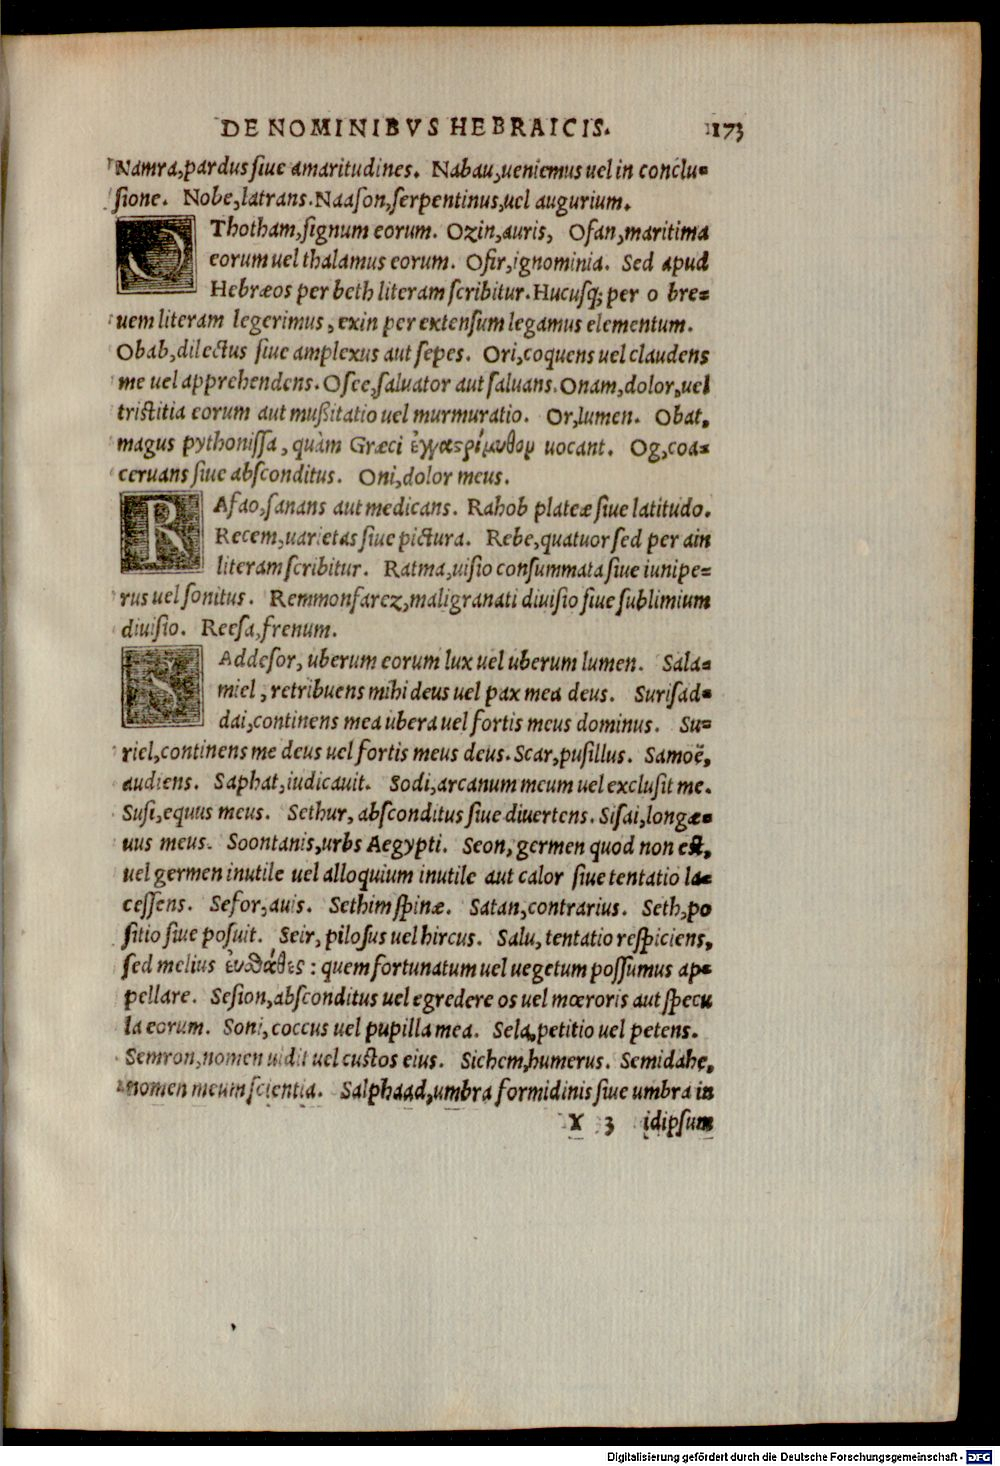 DE NOMINIBVS HEBRAICIS. 173
Namra,pardus siue amaritudines. Nabau,ueniemus uel in conclu-
sione. Nobe,latrans. Naason,serpentinus,uel augurium.
OThotham,signum eorum. Ozin,auris, Ofan,maritima
eorum uel thalamus eorum. Ofir,ignominia. Sed apud
Hebræos per beth literam scribitur. Hucusq; per o bre-
uem literam legerimus, exin per extensum legamus elementum.
Obab,dilectus siue amplexus aut sepes. Ori,coquens uel claudens
me uel apprehendens. Osee,saluator aut saluans. Onam,dolor,uel
trictitia eorum aut mußitatio uel murmuratio. Or,lumen. Obat,
magus pythonissa, quàm Græci ἐγγαςρίμυθον uocant. Og,coa-
ceruans siue absconditus. Oni,dolor meus.
RAfao,sanans aut medicans. Rahob plateæ siue latitudo.
Recem,uarietas siue pictura. Rebe,quatuor sed per ain
literam scribitur. Ratma,uisio consummata siue iunipe-
rus uel sonitus. Remmonfarez,maligranati diuisio siue sublimium
diuisio. Reesa,frenum.
SAddesor, uberum eorum lux uel uberum lumen. Sala-
miel, retribuens mihi deus uel pax mea deus. Surisad-
dai,continens mea ubera uel fortis meus dominus. Su-
riel,continens me deus uel fortis meus deus. Scar,pusillus. Samoë,
audiens. Saphat,iudicauit. Sodi,arcanum meum uel exclusit me.
Susi,equus meus. Sethur, absconditus siue diuertens. Sisai,longæ-
uus meus. Soontanis,urbs Aegypti. Seon, germen quod non est,
uel germen inutile uel alloquium inutile aut calor siue tentatio la-
cessens. Sefor,auis. Sethim spinæ. Satan,contrarius. Seth,po
sitio siue posuit. Seir, pilosus uel hircus. Salu, tentatio respiciens,
sed melius : quem fortunatum uel uegetum possumus ap-
pellare. Sesion,absconditus uel egredere os uel mœroris aut specu
la eorum. Soni,coccus uel pupilla mea. Sela,petitio uel petens.
Semron,nomen uidit uel custos eius. Sichem,humerus. Semidahe,
nomen meum scientia. Salphaad,umbra formidinis siue umbra in
X 3 idipsum
Digitalisierung gefördert durch die Deutsche Forschungsgemeinschaft - DFG